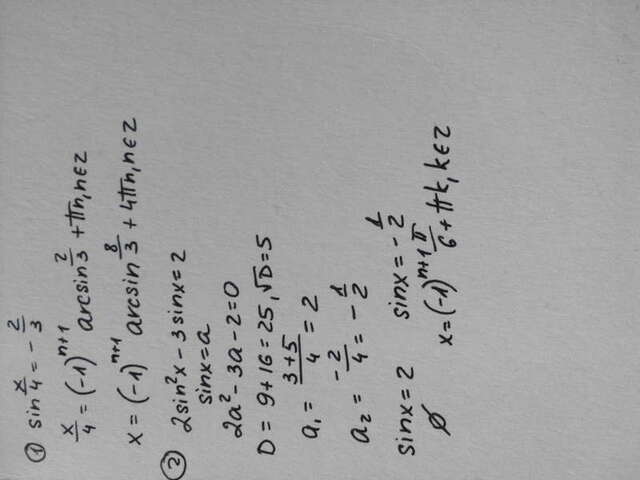 ① sin x/4 = - 2/3
x/4 = (-1)^(n+1) arcsin 2/3 + πn, n∈z
x = (-1)^(n+1) arcsin 8/3 + 4πn, n∈z
② 2sin²x - 3sinx = 2
sinx = a
2a² - 3a - 2 = 0
D = 9 + 16 = 25, √D = 5
a₁ = (3+5)/4 = 2
a₂ = -2/4 = - 1/2
sinx = 2 sinx = - 1/2
∅ x = (-1)^(n+1) π/6 + πk, k∈z